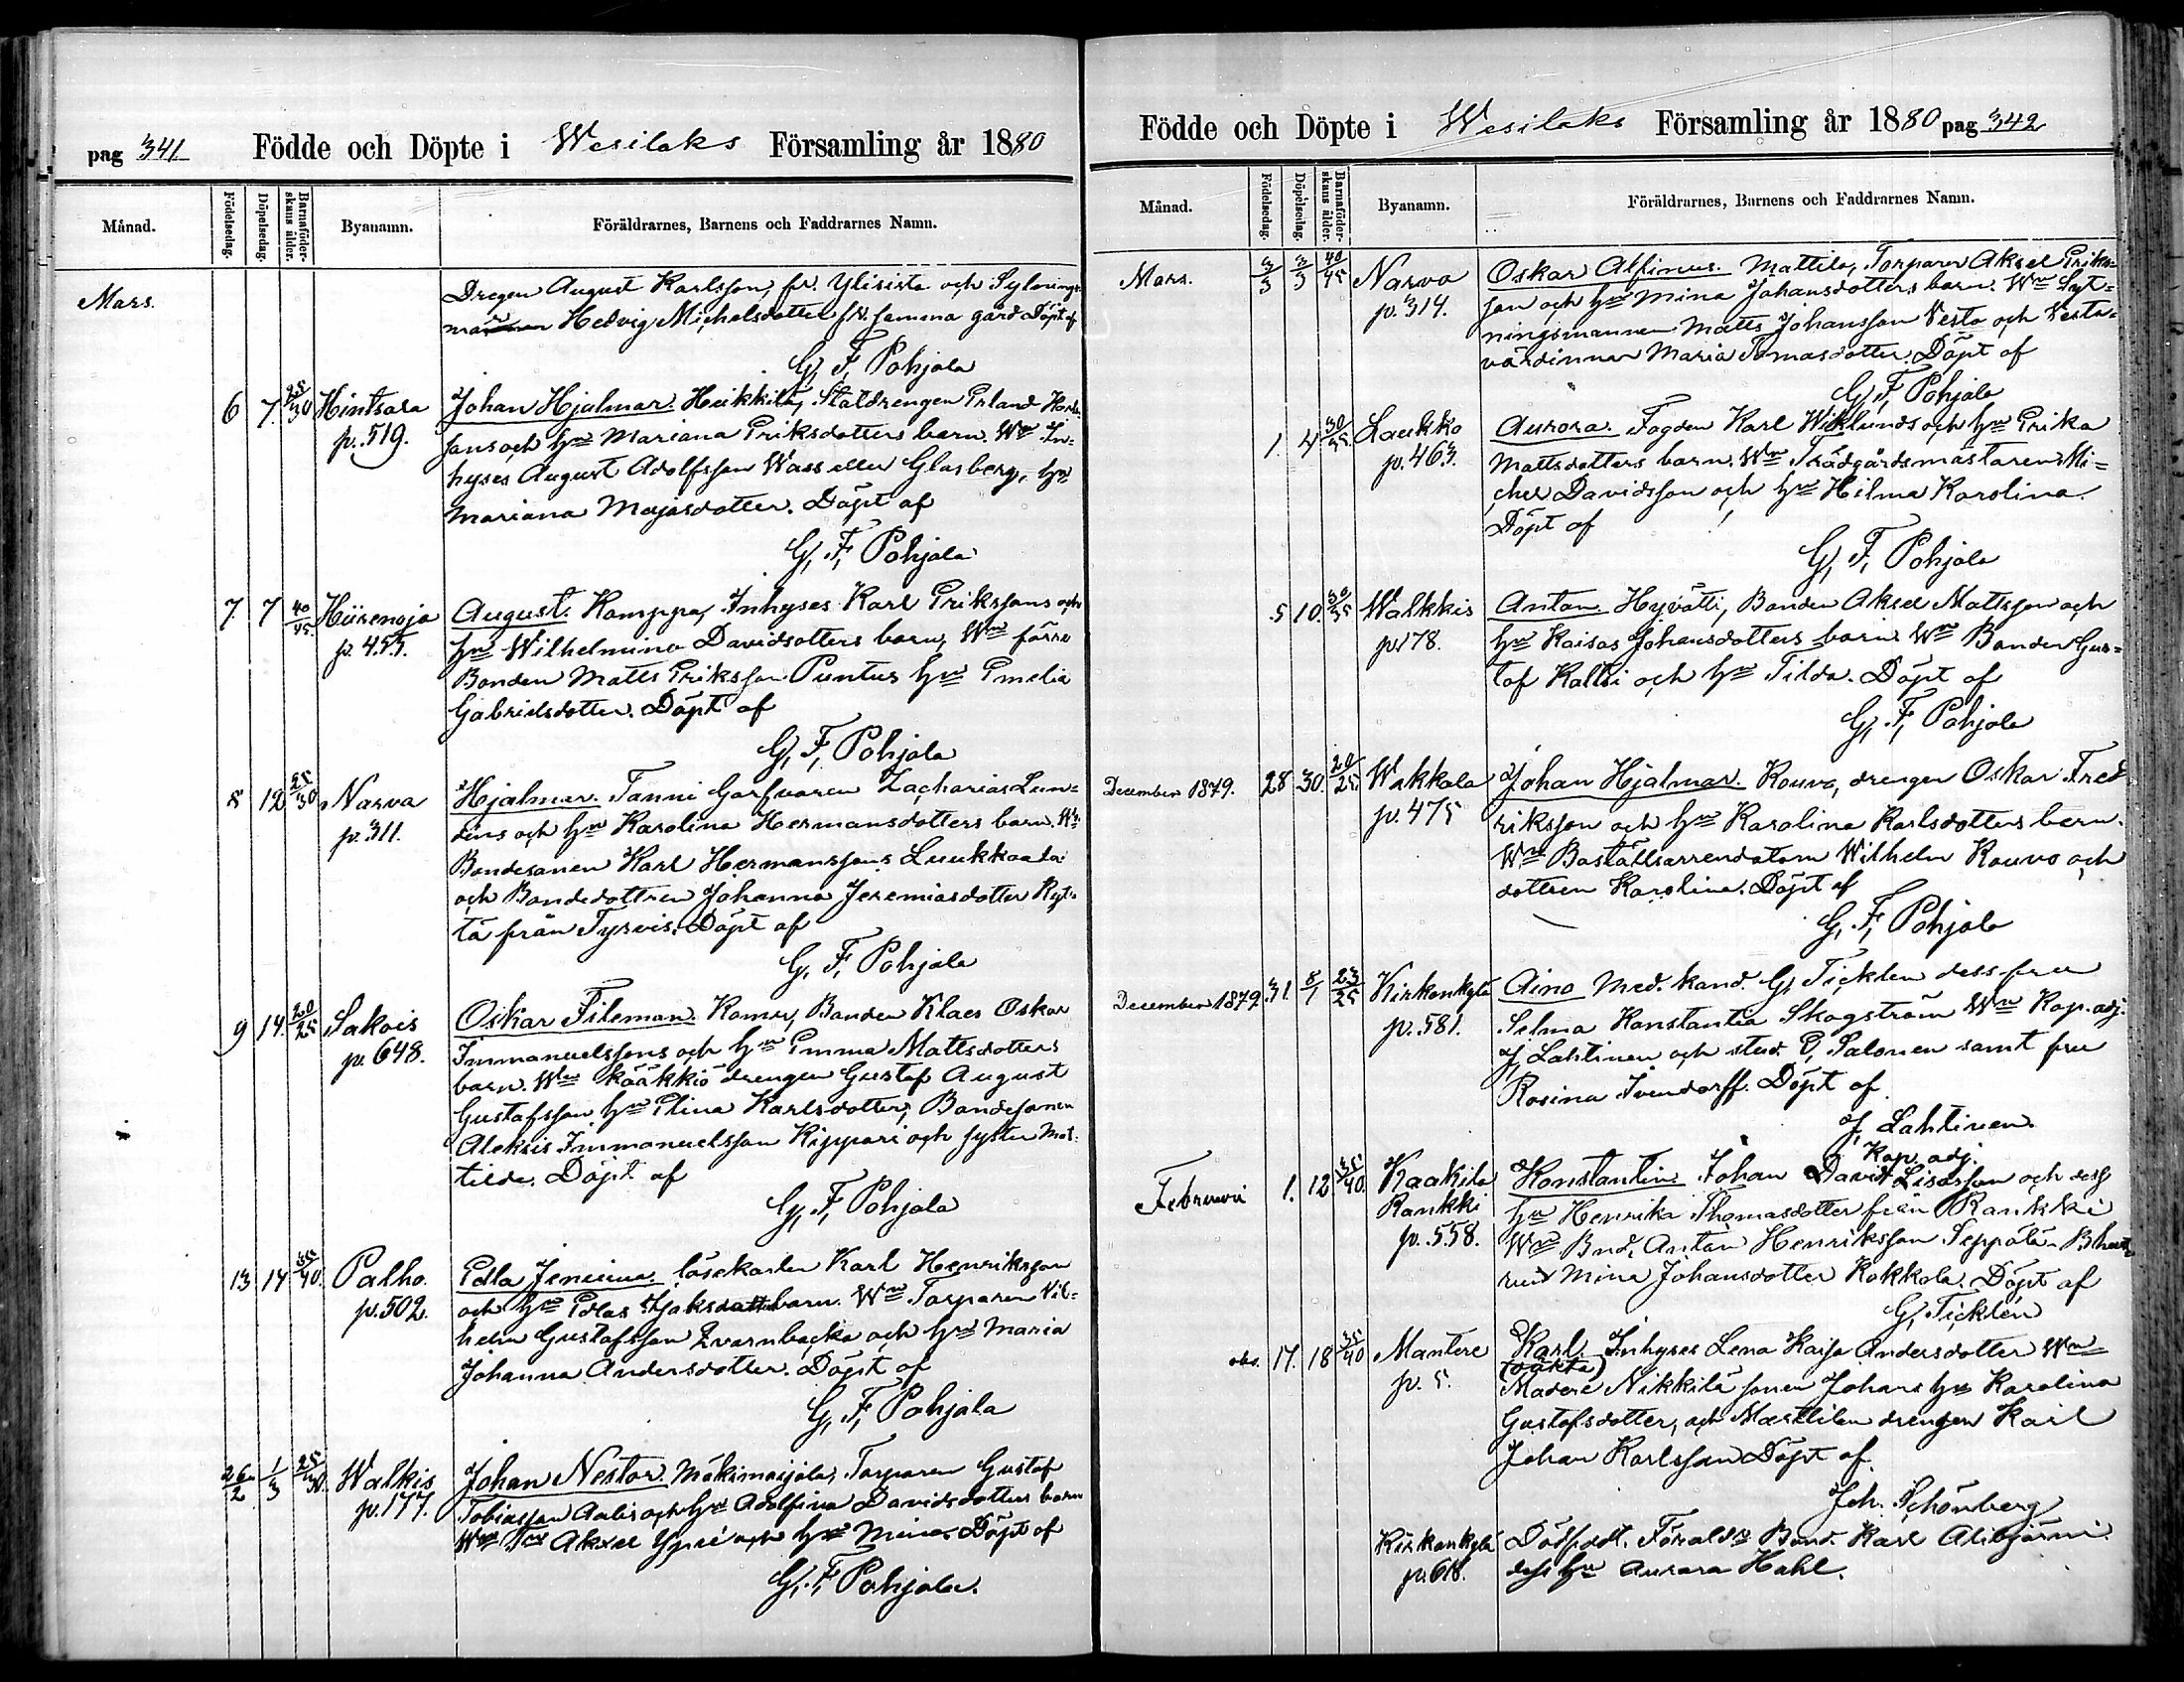 pag 341 Födde och Döpte i Wesilaks Församling år 1880
Månad. Födelsedag. Döpelsedag. Barnaföderskans ålder. Byanamn. Föräldrarnes, Barnens och Faddrarnes Namn.
Mars. Drengen August Karlsson, fr. Ylisista och
Hedvig Michelsdotter fr. samma gård Döpt af
G. F. Pohjala
6 7. 25/30 Hintsala Johan Hjalmar. Heikkilä, Staldrengen Erland
p. 519. sons och hu Mariana Eriksdotters barn. Wn In-
hyses August Adolfsson Wass eller Glasberg, hu
Mariana Majasdotter. Döpt af
G. F. Pohjala
7. 7 40/45. Hiirenoja August. Kamppa, Inhyses Karl Erikssons och
p. 455. hu Wilhelmina Davidsdotters barn, Wn förre
Bonden Matts Eriksson Puntus hu Emelia
Gabrielsdotter. Döpt af
G. F. Pohjala
8 12 25/30 Narva Hjalmar. Tanni Garfvaren Zacharias Lun-
p. 311. dens och hu Karolina Hermansdotters barn. Wn
Bondesonen Karl Hermanssons Luukkaala
och Bondedottren Johanna Jeremiasdotter Kyt-
tä från Tyrvis. Döpt af
G. F. Pohjala
9 14. 20/25 Sakois Oskar Fileman. Bonden Klaes Oskar
p. 648. Immanuelssons och hu Emma Mattsdotters
barn. Wn Kääkkiö drengen Gustaf August
Gustafsson hu Elina Karlsdotter, Bondesonen
Aleksis Immanuelsson Kippari och syster Mat-
tilda. Döpt af
G. F. Pohjala
13 14 35/40. Palho. Edla Jenina. lösekarlen Karl Henriksson
p. 502. och hu Edlas barn. Wn Torparen Vil-
helm Gustafsson Qvarnbacka och hu Maria
Johanna Andersdotter. Döpt af
G. F. Pohjala
26/2 1/3 25/30. Walkis Johan Nestor. Mäkimaijala, Torparen Gustaf
p. 177. Tobiasson och hu Adolfina Davidsdotters barn
Wn Aksel och hu Mina. Döpt af
G. F. Pohjala.
Födde och Döpte i Wesilaks Församling år 1880 pag 342
Månad. Födelsedag. Döpelsedag. Barnaföderskans ålder. Byanamn. Föräldrarnes, Barnens och Faddrarnes Namn.
Mars. 3/3 3/3 40/45 Narva Oskar Alfinus. Mattila, Torparen Aksel Eriks-
p. 314. son och hu Mina Johansdotters barn. Wn Syt-
ningsmannen Matts Johansson Vesta och Vesta-
värdinnan Maria Tomasdotter. Döpt af
G. F. Pohjala
1. 4 30/35. Laukko Aurora. Fogden Karl Wiklunds och hu Erika
p. 463. Mattsdotters barn. Wn Trädgårdsmästaren Mi-
chel Davidsson och hu Hilma Karolina.
Döpt af
G. F. Pohjala
5 10. 30/35 Walkkis Anton. Hyvätti, Bonden Aksel Mattsson och
p. 178. hu Kaisas Johansdotters barn. Wn Bonden Gus-
taf Kaltsi och hu Tilda. Döpt af
G. F. Pohjala
December 1879. 28 30. 20/25 Wakkala Johan Hjalmar. Rouvo, drengen Oskar Fred
p. 475 riksson och hu Karolina Karlsdotters barn.
Wn Boställsarrendatorn Wilhelm Rouvo och
dottren Karolina. Döpt af
G. F. Pohjala
December 1879. 31. 8/1 23/25 Kirkonkylä Aino Med. kand. G. Ticklen dess fru
p. 581. Selma Konstantia Skogström Wn Kap. adj.
J. Lahtinen och stud. E. Salonen samt fru
Rosina Ivendorff. Döpt af.
J. Lahtinen.
Kap. adj.
Februari 1. 12 35/40. Kaakila Konstantin Johan David Lisasson och dess
Rankki hu Henrika Thomasdotter från Rankki
p. 558. Wn Bnd. Anton Henriksson Seppälä
Mina Johansdotter Kokkola. Döpt af
G. Ticklén
obs. 17. 18 35/40 Mantere Karl. Inhyses Lena Kaisa Andersdotter Wn
(oäkta)
p. 5. Nikkilä sonen Johans hu Karolina
Gustafsdotter, och Marttilan drengen Karl
Johan Karlsson Döpt af.
Joh. Schönberg
Kirkonkylä Dödfödt. Förald. Bond. Karl Alibjärni
p. 618. dess hu Aurora Hahl.